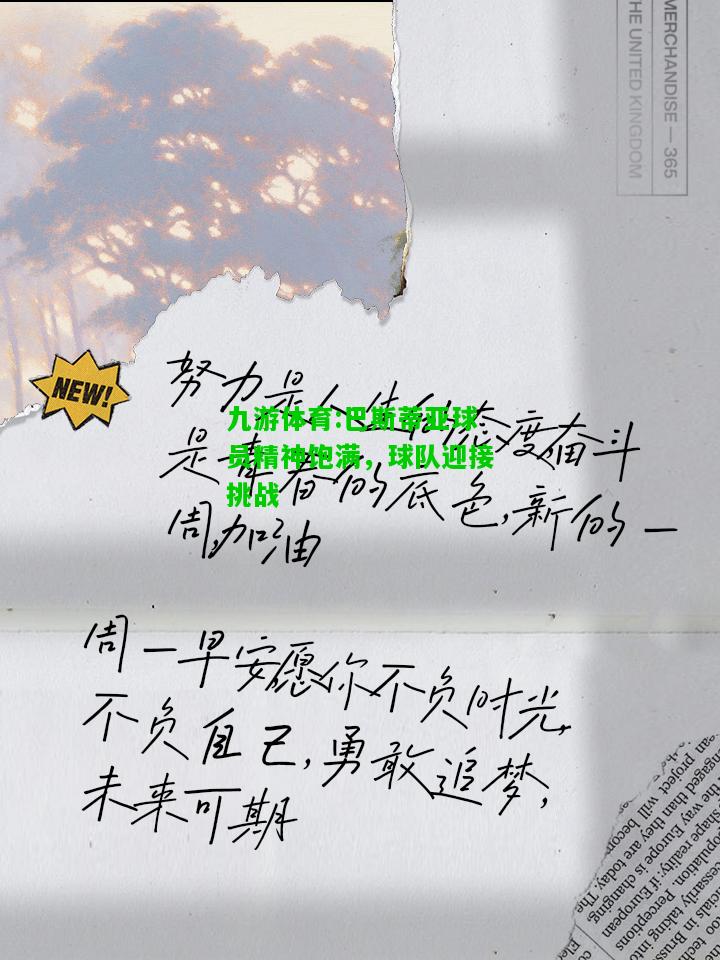 MERCHANDISE — 365
THE UNITED KINGDOM
NEW!
努力是人生的态度,奋斗
是青春的底色,新的一
周,加油
九游体育:巴斯蒂亚球
员精神饱满，球队迎接
挑战
周一早安,愿你不负时光,
不负自己,勇敢追梦,
未来可期
ean project will becom
ngaged than they are today. The
the way Europe is changing
shape reality: if European
population. Perceptions
cessarily taking into